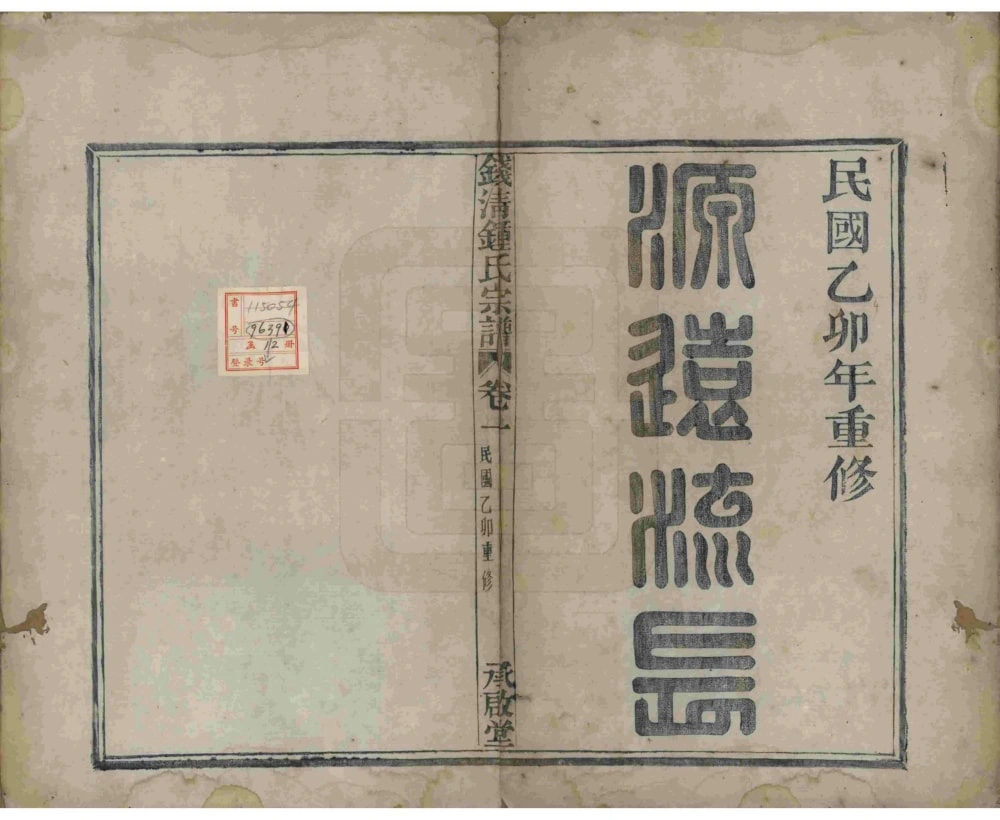 民國乙卯年重修
源遠流長
錢清鍾氏宗譜
卷一
民國乙卯重修
承啟堂
書号
115054
96390
函 1/2 册
登录号